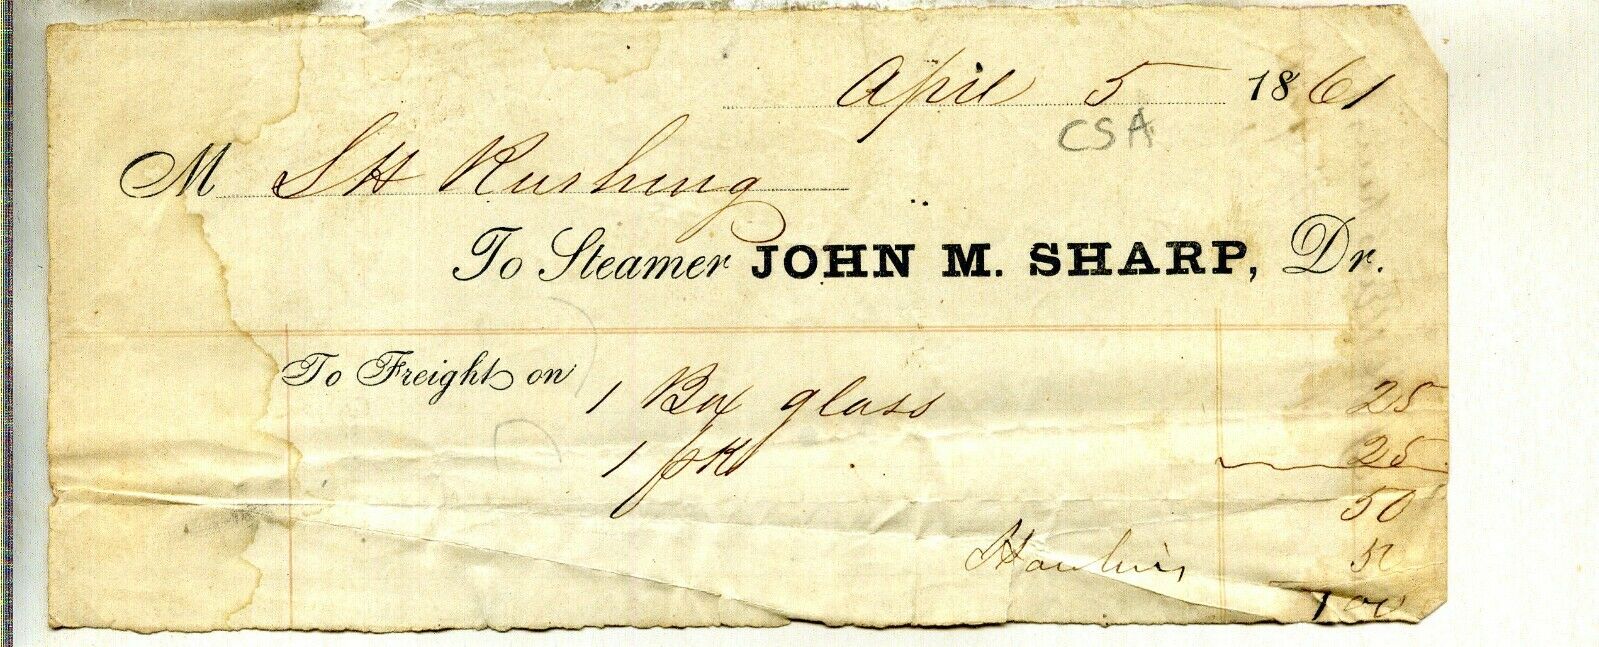 April 5 1861
CSA
M S H Rushing
To Steamer JOHN M. SHARP, Dr.
To Freight on 1 Box glass 25
1 pk 25
50
50
1 00